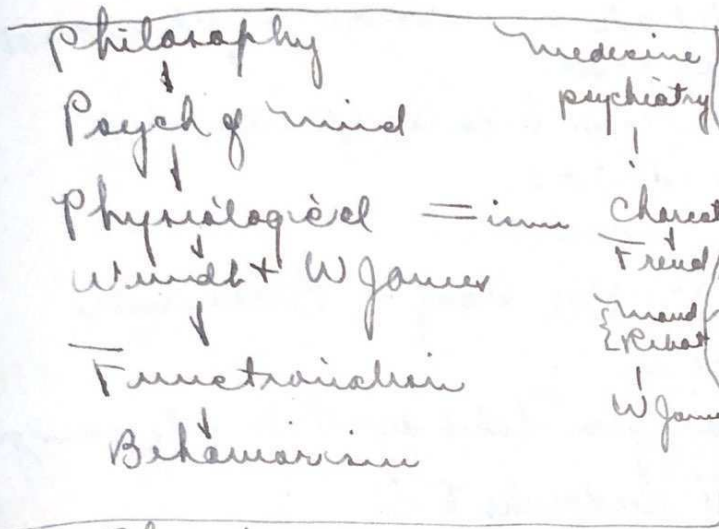 Philosophy
Psych of Mind
Physiological = ism
Wundt + W James
Functionalism
Behaviorism
Medicine
psychiatry
Charcot
Freud
Ribot
W James